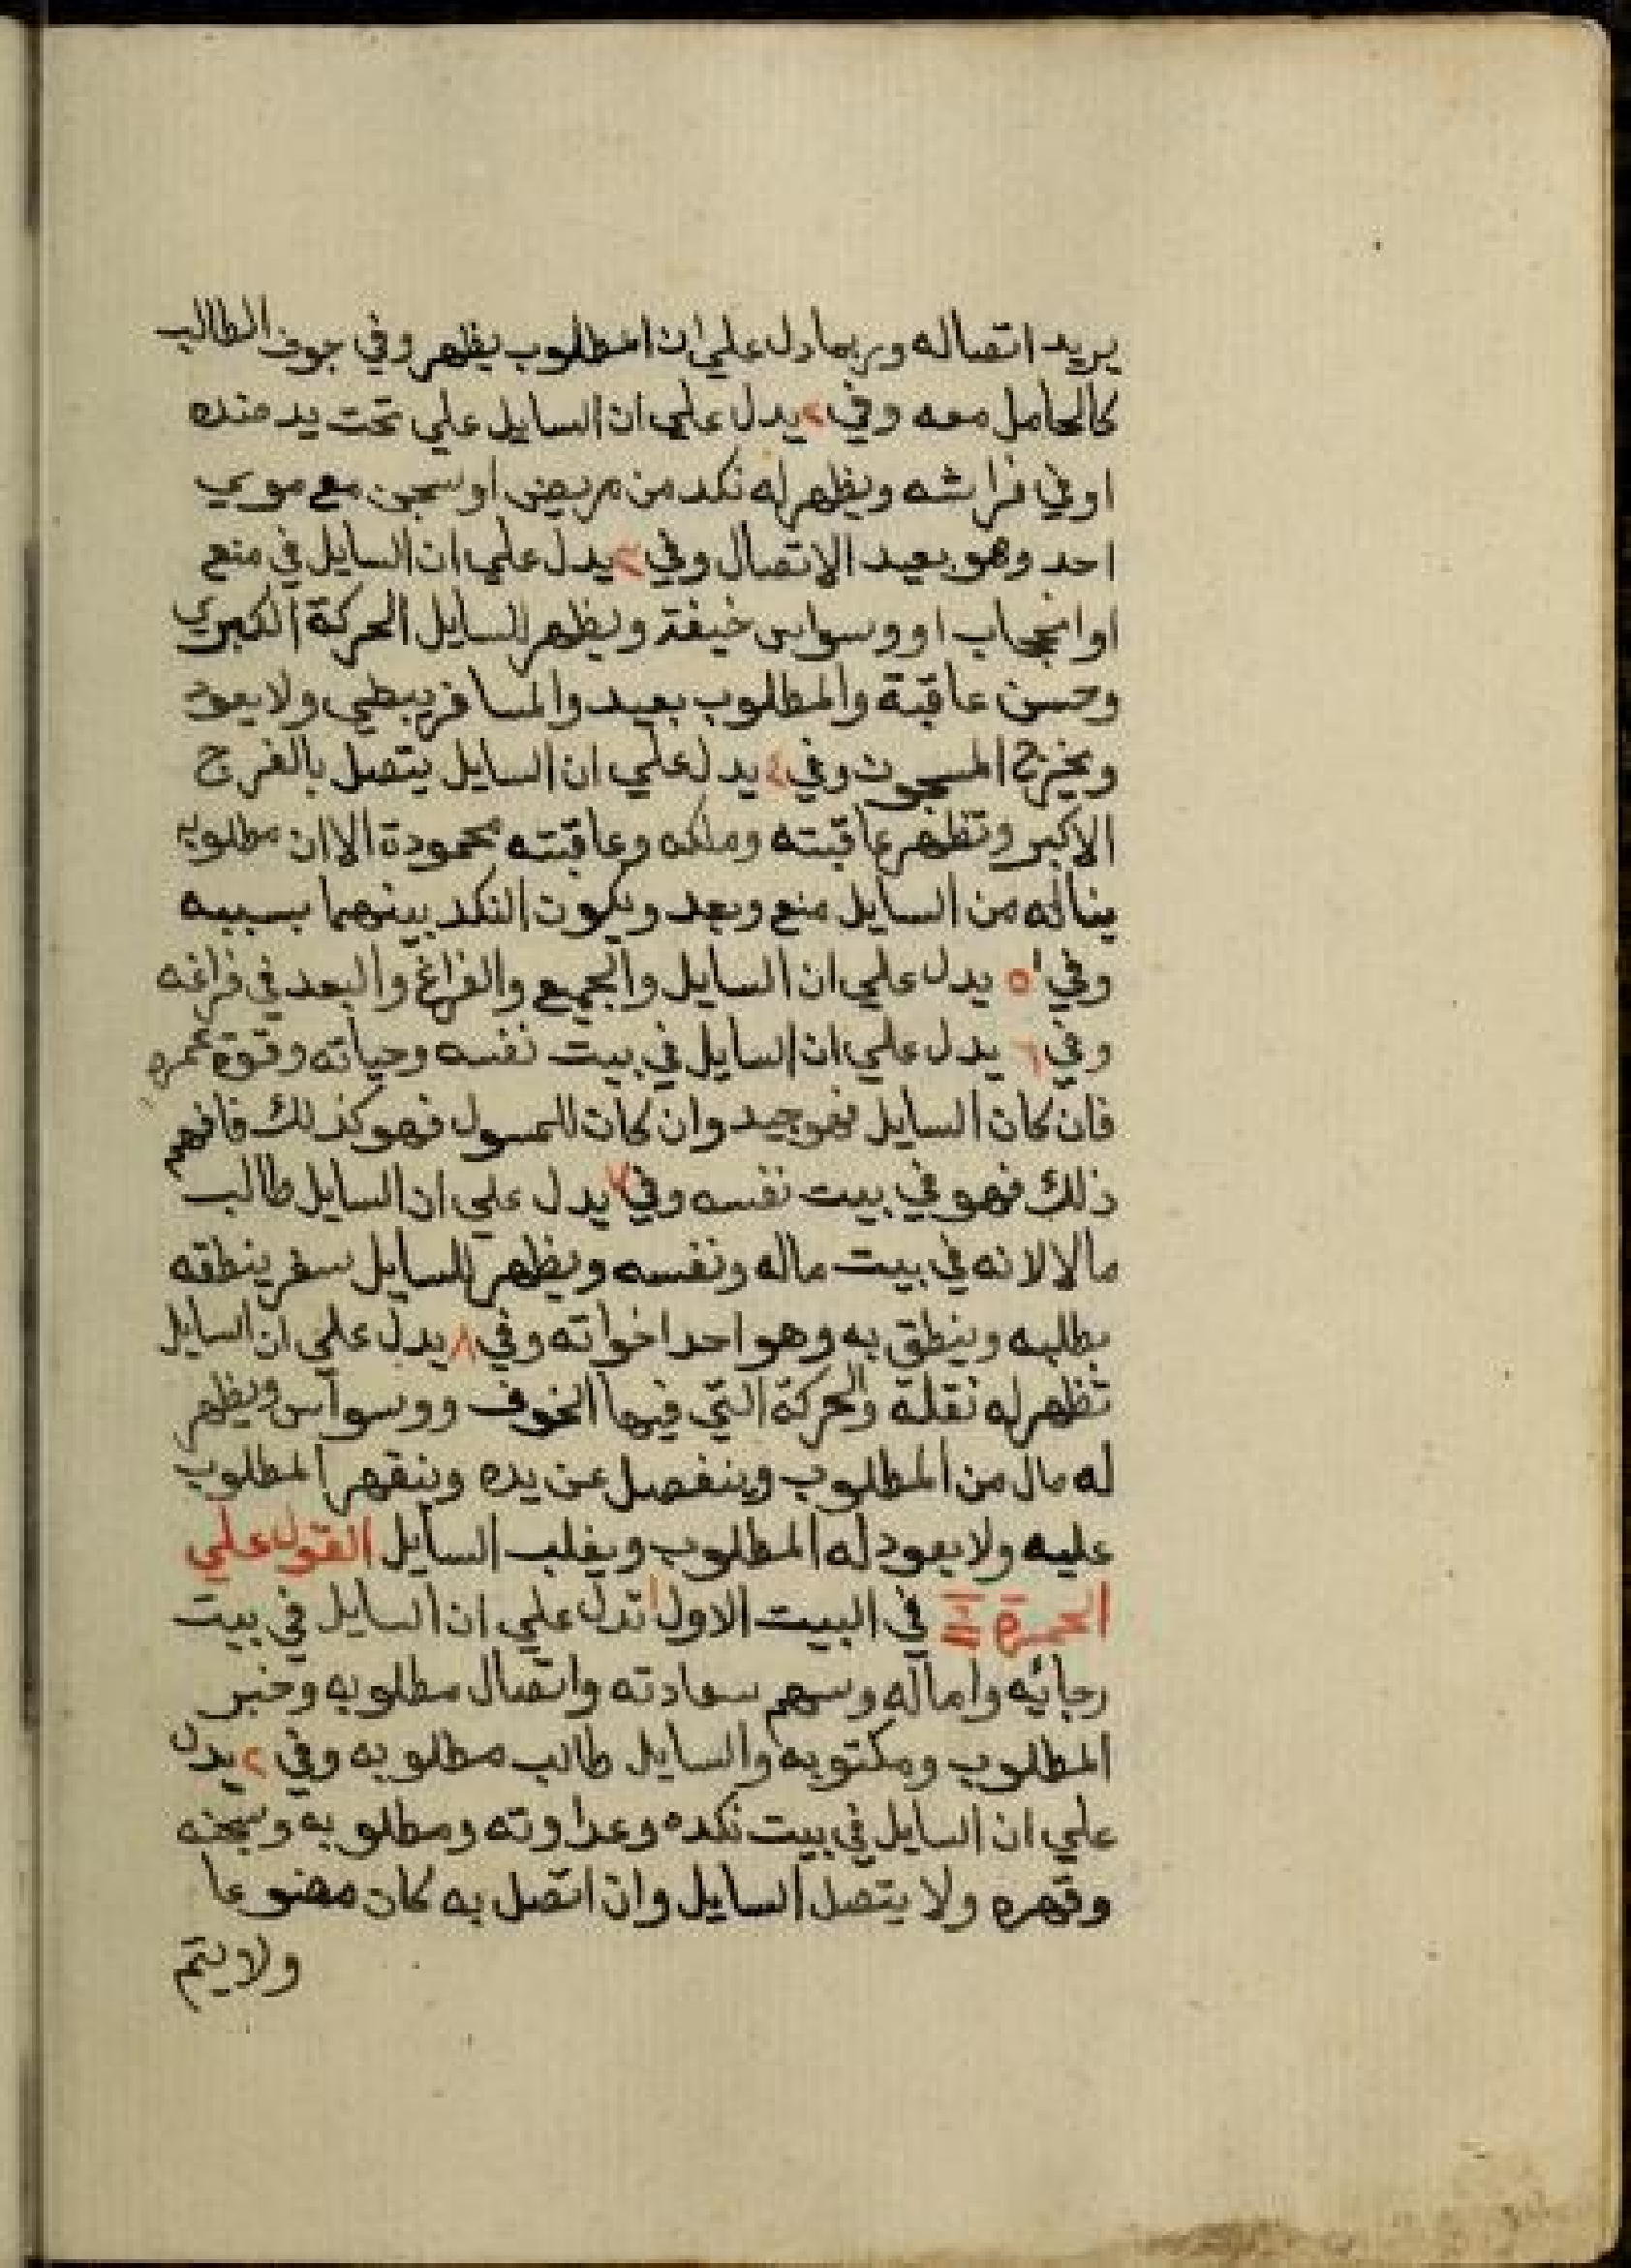 يريد اتصاله وربما دل علي ان المطلوب يظهر وفي جوف الطالب
كالحامل معه وفي ٢ يدل علي ان السايل علي تحت يد ضده
او في فراشه ويظهر له نكد من مريض او سجن مع موت
احد وهو بعيد الاتصال وفي ٣ يدل علي ان السايل في منع
او انحجاب او وسواس خيفة ويظهر للسايل الحركة الكبري
وحسن عاقبة والمطلوب بعيد والمسافر يبطي ولا يعود
ويخرج المسجون وفي ٤ يدل علي ان السايل يتصل بالفرح
الاكبر وتظهر عاقبته وملكه وعاقبته محمودة الا ان مطلوبه
يناله من السايل منع وبعد ويكون النكد بينهما بسببه
وفي ٥ يدل علي ان السايل والجميع والفراغ والبعد في فراغه
وفي ٦ يدل علي ان السايل في بيت نفسه وحياته وقوة عمره
فان كان السايل فهو جيد وان كان للمسول فهو كذلك فافهم
ذلك فهو في بيت نفسه وفي ٧ يدل علي ان السايل طالب
مالا لانه في بيت ماله ونفسه ويظهر للسايل سفر ينطقه
بطلبه وينطق به وهو احد اخواته وفي ٨ يدل علي ان السايل
تظهر له نقلة والحركة التي فيها الخوف ووسواس ويظهر
له مال من المطلوب وينفصل عن يده وينقهر المطلوب
عليه ولا يعود له المطلوب ويغلب السايل القول علي
الحمرة في البيت الاول ا تدل علي ان السايل في بيت
رجائه واماله وسهم سعادته واتصال مطلوبه وخبر
المطلوب ومكتوبه والسايل طالب مطلوبه وفي ٢ يدل
علي ان السايل في بيت نكده وعداوته ومطلوبه وسجنه
وقهره ولا يتصل السايل وان اتصل به كان ممنوعا
ولا يتم